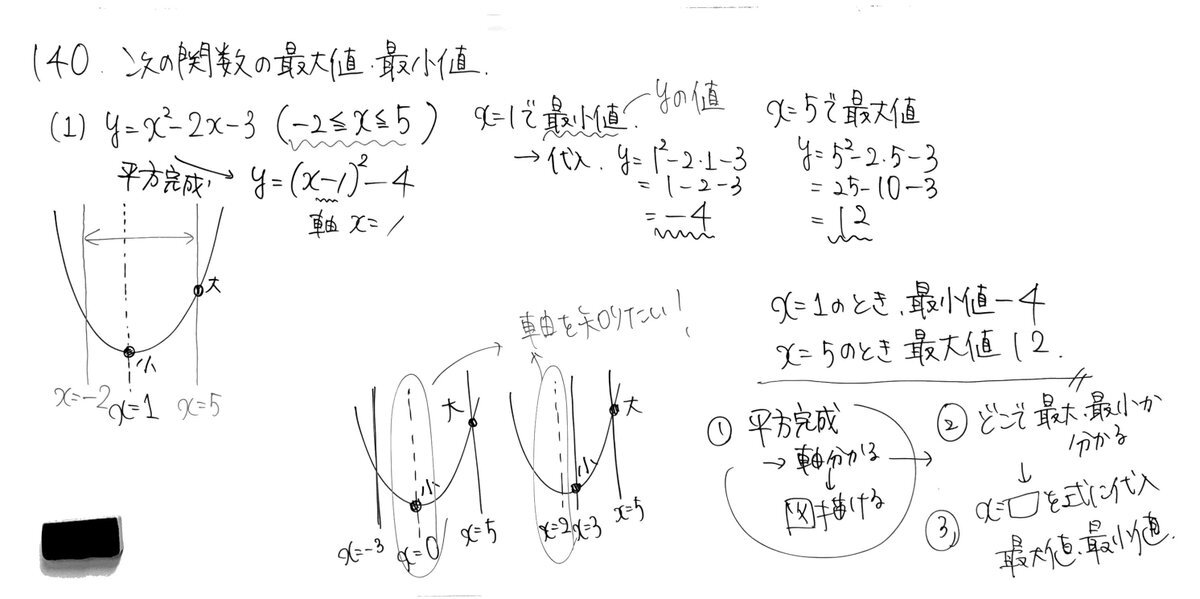 140. 次の関数の最大値.最小値.
(1) y=x²-2x-3 (-2≦x≦5)
平方完成. y=(x-1)²-4
軸 x=1
大
小
x=-2 x=1 x=5
x=1で最小値. yの値
→代入. y=1²-2・1-3
=1-2-3
=-4
x=5で最大値
y=5²-2・5-3
=25-10-3
=12
x=1のとき、最小値-4
x=5のとき 最大値12.
軸を知りたい!
大
小
x=-3 x=0 x=5
大
小
x=2 x=3 x=5
① 平方完成
→軸分かる
↓
図描ける
→
② どこで最大.最小か
分かる
↓
③ x=□を式に代入
最大値.最小値.